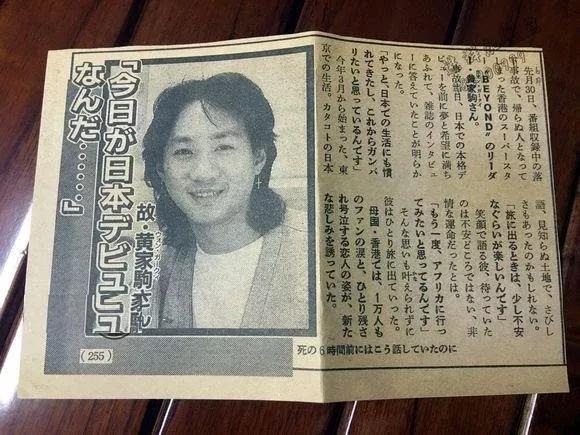 先月30日、番組収録中の落
事故で、帰らぬ人となって
まった香港のスーパースタ
ー“BEYOND”のリーダ
ー・黄家駒さん。
事故当日、日本での本格デ
ビューを前に夢と希望に満ち
あふれて、雑誌のインタビュ
ーに答えていたことが明らか
になった。
「やっと、日本での生活にも慣
れてきたし、これからガンバ
りたいと思っているんです」
今年3月から始まった、東
京での生活。カタコトの日本
語、見知らぬ土地で、さびし
さもあったのかもしれない。
「旅に出るときは、少し不安
なぐらいが楽しいんです」
笑顔で語る彼、待っていた
のは不安どころではない、非
情な運命だったとは。
「もう一度、アフリカに行っ
てみたいと思ってるんです」
そんな思いも叶えられずに
彼はひとり旅に出ていった。
母国・香港では、1万人も
のファンの涙と、ひとり残さ
れ号泣する恋人の姿が、新た
な悲しみを誘っていた。
「今日が日本デビュー
なんだ……」
故・黄家駒さん
(255)
死の6時間前にはこう話していたのに